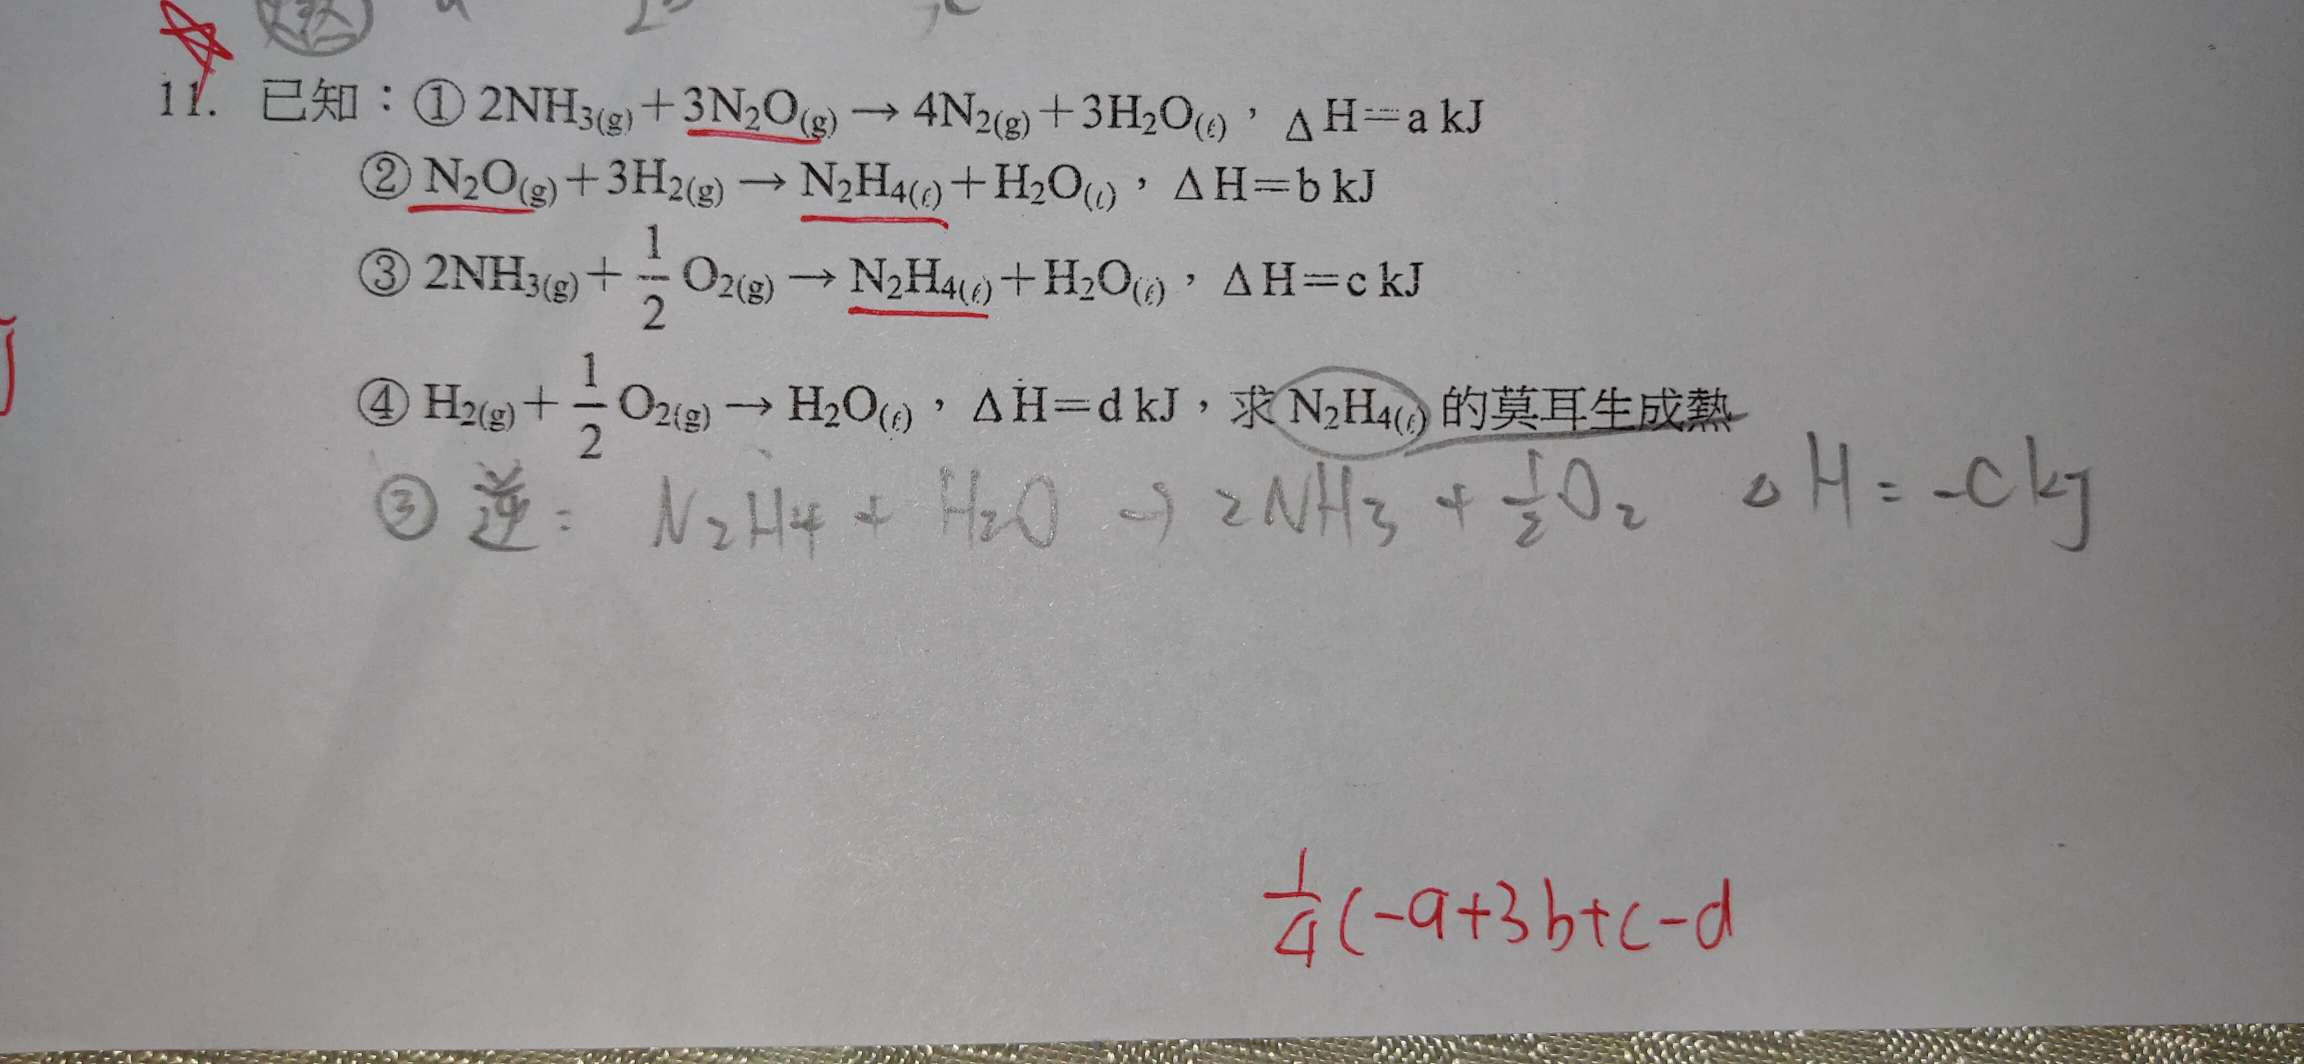 11. 已知：① 2NH₃(g)＋3N₂O(g)→4N₂(g)＋3H₂O(ℓ)，ΔH＝a kJ
② N₂O(g)＋3H₂(g)→N₂H₄(ℓ)＋H₂O(ℓ)，ΔH＝b kJ
③ 2NH₃(g)＋1/2 O₂(g)→N₂H₄(ℓ)＋H₂O(ℓ)，ΔH＝c kJ
④ H₂(g)＋1/2 O₂(g)→H₂O(ℓ)，ΔH＝d kJ，求 N₂H₄(ℓ) 的莫耳生成熱
③ 逆： N₂H₄ + H₂O → 2NH₃ + 1/2 O₂ ΔH = -c kJ
1/4 (-a+3b+c-d